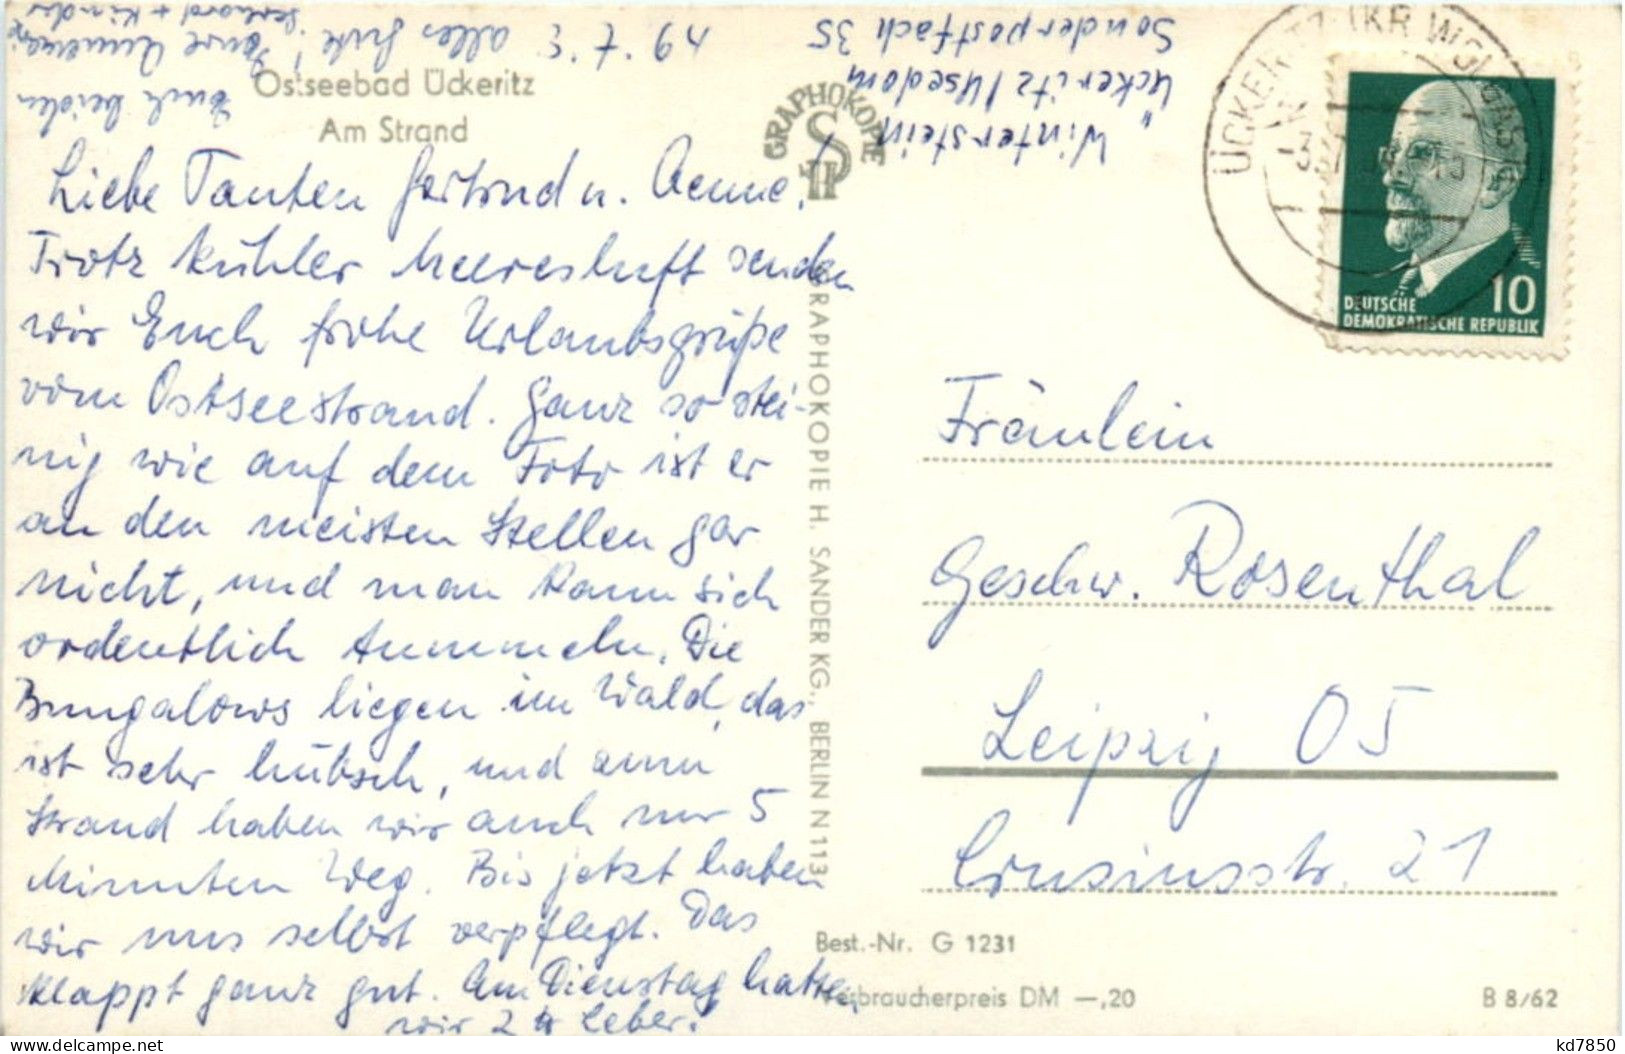 Ostseebad Ückeritz
Am Strand
Liebe Tanten Gertrud u. Aenne!
Trotz kühler Meeresluft senden
wir Euch frohe Urlaubsgrüße
vom Ostseestrand. Ganz so stei-
nig wie auf dem Foto ist er
an den meisten Stellen gar
nicht, und man kann sich
ordentlich tummeln. Die
Bungalows liegen im Wald, das
ist sehr hübsch, und zum
Strand haben wir auch nur 5
Minuten Weg. Bis jetzt haben
wir uns selbst verpflegt. Das
klappt ganz gut. Am Dienstag hatten
wir 2 Leber.
Euch beiden
alles Gute! Eure Annemarie
Gerhard + Kinder
Winterstein
Ückeritz/Usedom
Sonderpostfach 35
GRAPHOKOPIE
GRAPHOKOPIE H. SANDER KG., BERLIN N 113
ÜCKERITZ (KR WOLGAST)
10
DEUTSCHE
DEMOKRATISCHE REPUBLIK
Fräulein
Geschw. Rosenthal
Leipzig O5
Crusiusstr. 21
Best.-Nr. G 1231
Verbraucherpreis DM —,20
B 8/62
kd7850